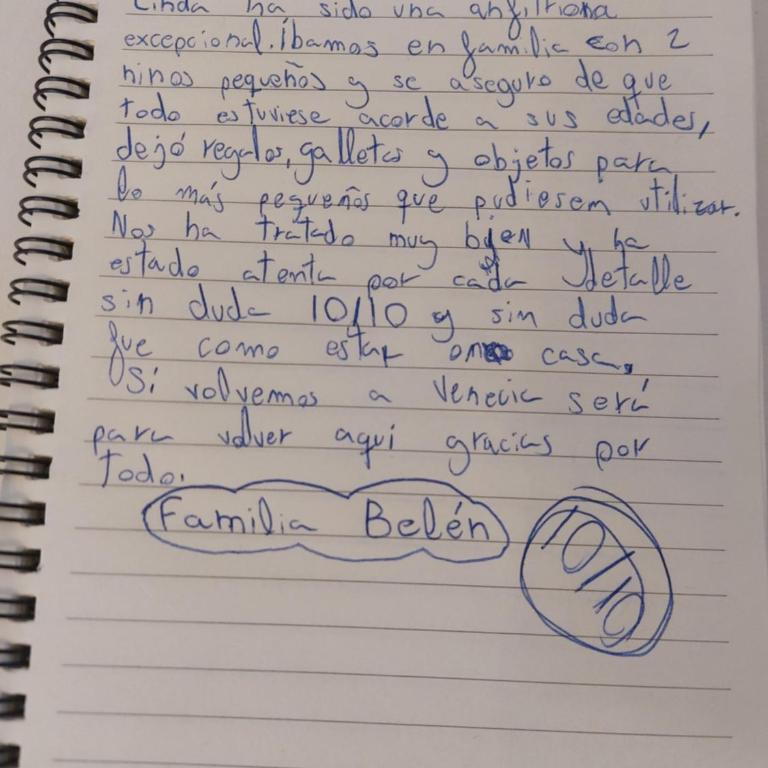 Linda ha sido una anfitriona
excepcional. Íbamos en familia con 2
ninos pequeños y se aseguro de que
todo estuviese acorde a sus edades,
dejó regalos, galletas y objetos para
lo más pequeños que pudiesem utilizar.
Nos ha tratado muy bien y ha
estado atenta por cada detalle
sin duda 10/10 y sin duda
fue como estar en casa,
Si volvemos a Venecia será
para volver aquí gracias por
todo.
Familia Belén
10/10